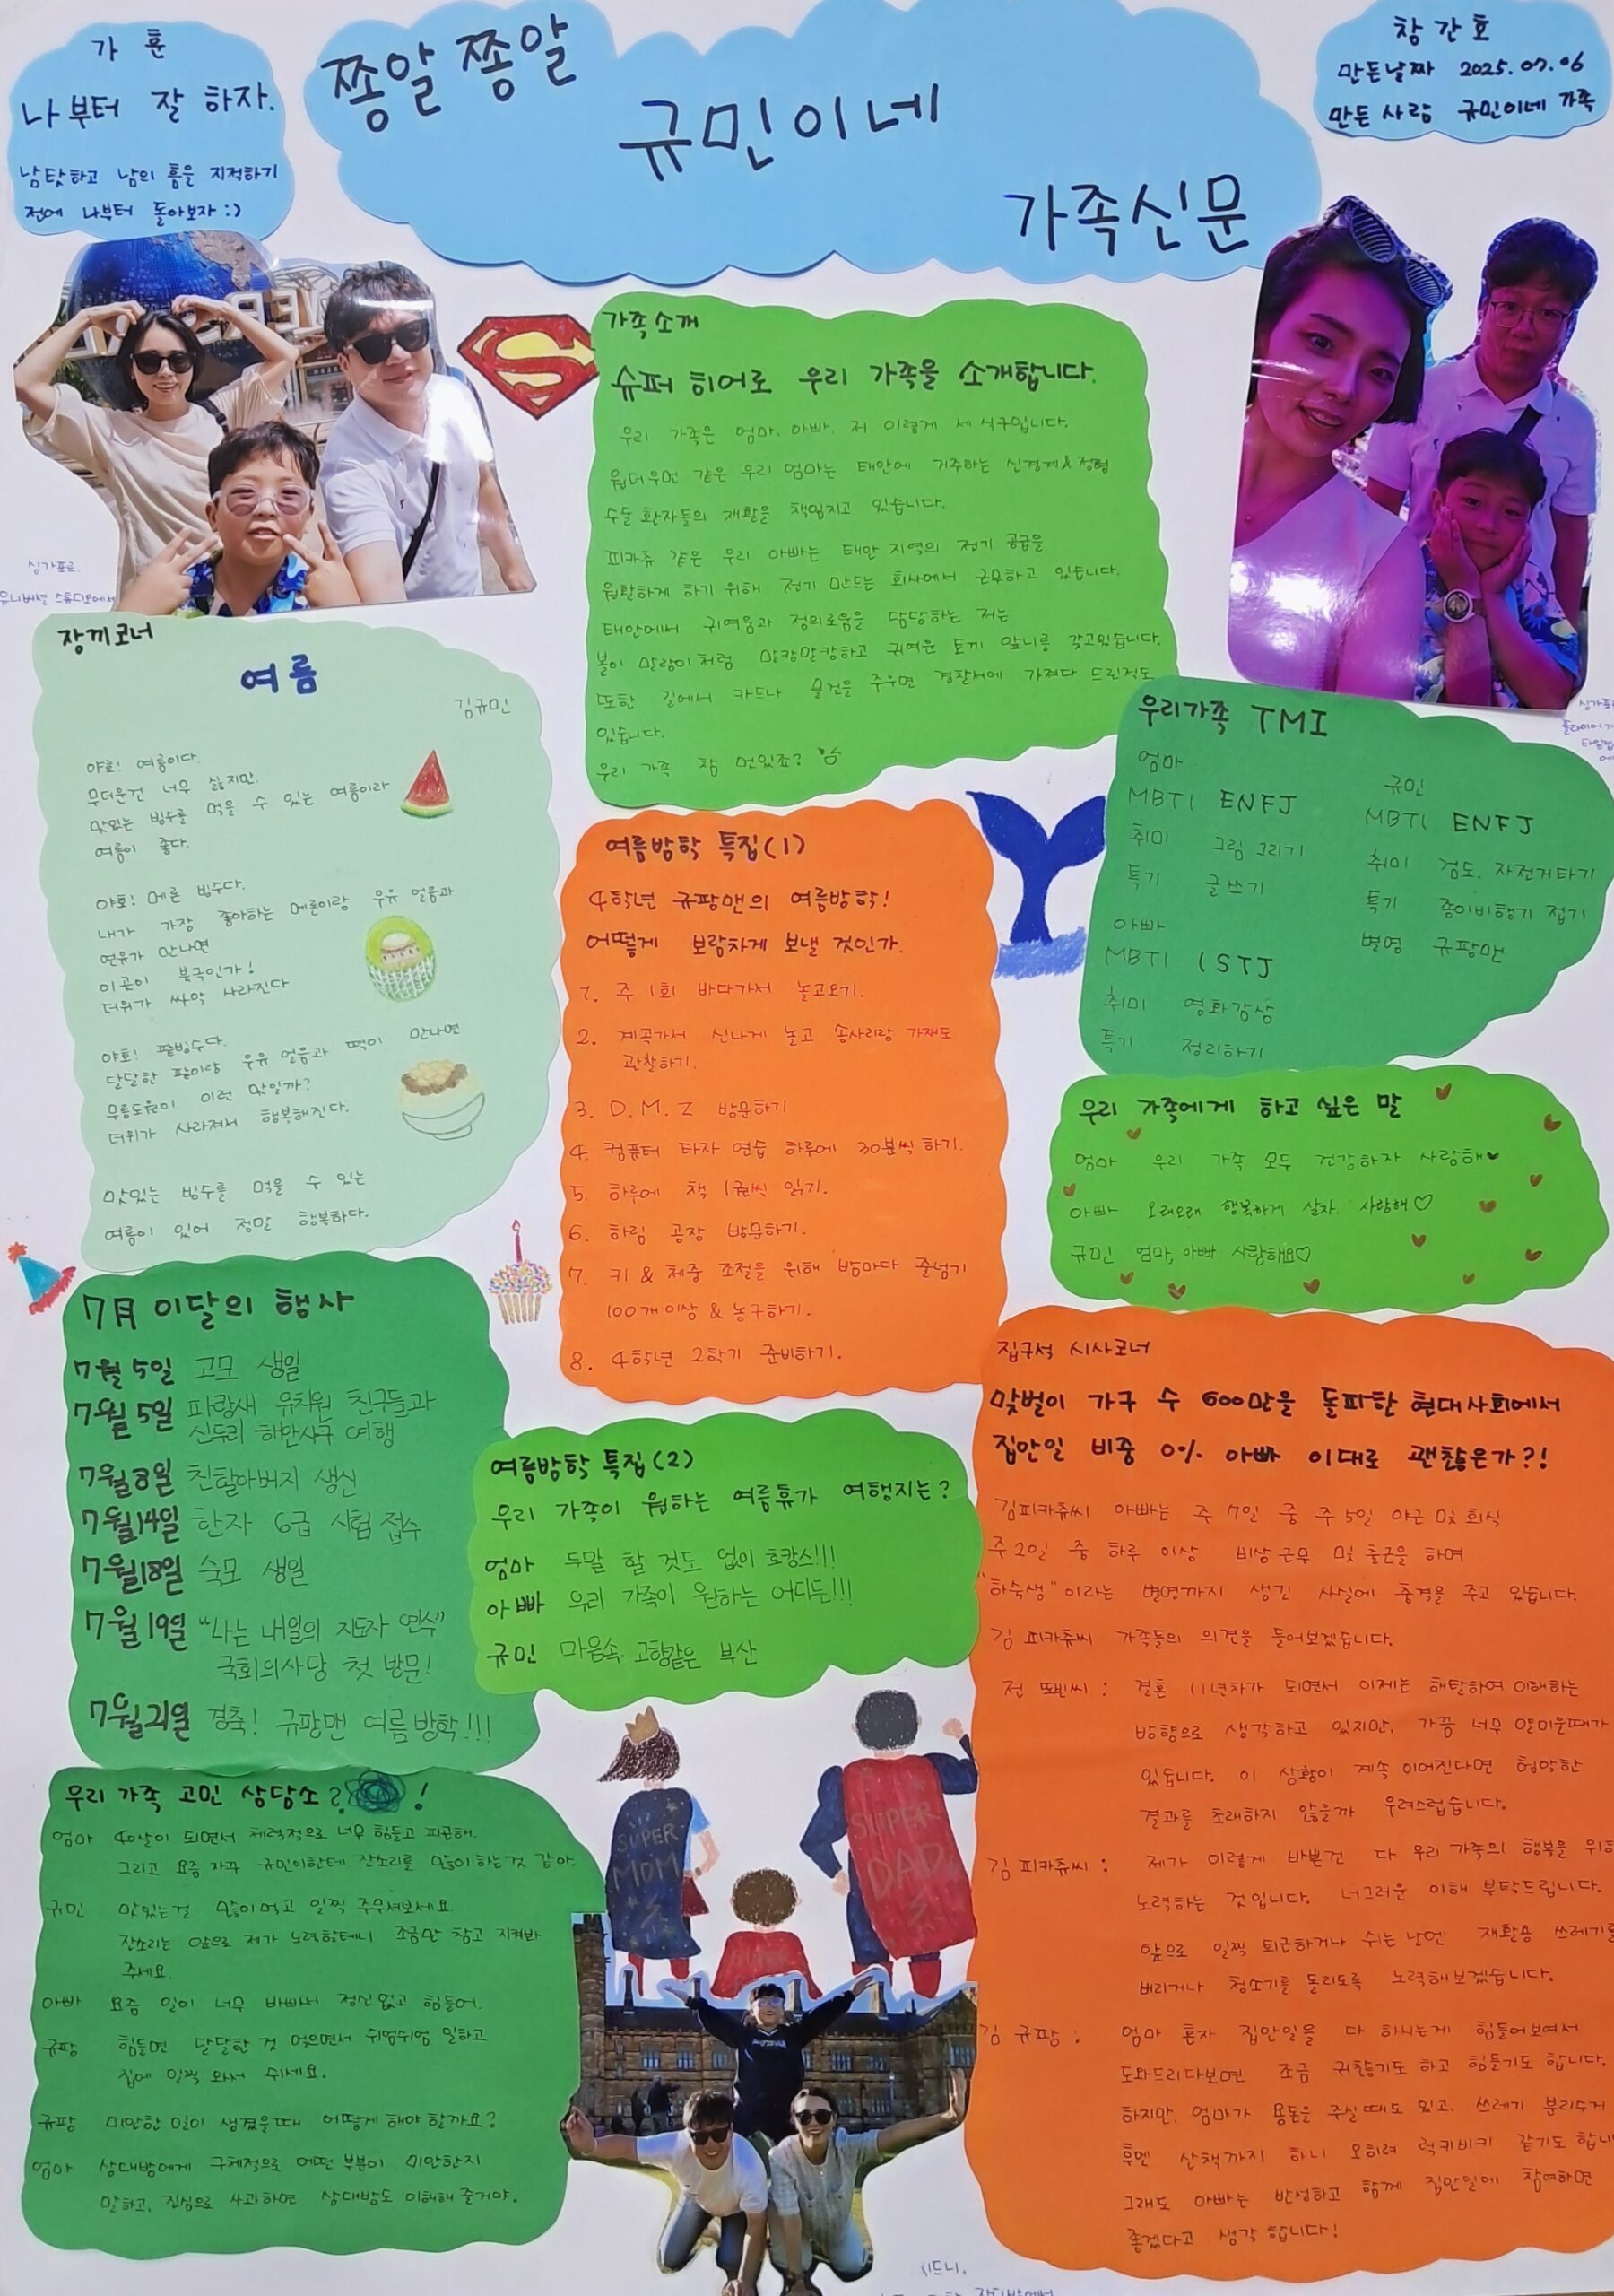 가 훈
나부터 잘 하자.
남탓하고 남의 흠을 지적하기
전에 나부터 돌아보자 :)
쫑알 쫑알
규민이네
가족신문
창간호
만든날짜 2025.07.06
만든 사람 규민이네 가족
싱가포르.
유니버셜 스튜디오에서
가족소개
슈퍼 히어로 우리 가족을 소개합니다.
우리 가족은 엄마, 아빠, 저 이렇게 세 식구입니다.
원더우먼 같은 우리 엄마는 태안에 거주하는 신경계&정형
수술 환자들의 재활을 책임지고 있습니다.
피카츄 같은 우리 아빠는 태안 지역의 전기 공급을
원활하게 하기 위해 전기 만드는 회사에서 근무하고 있습니다.
태안에서 귀여움과 정의로움을 담당하는 저는
볼이 말랑이처럼 말캉말캉하고 귀여운 토끼 앞니를 갖고있습니다.
또한 길에서 카드나 물건을 주우면 경찰서에 가져다 드린적도
있습니다.
우리 가족 참 멋있죠?
장끼코너
여름
김규민
야호! 여름이다.
무더운건 너무 싫지만.
맛있는 빙수를 먹을 수 있는 여름이라
여름이 좋다.
야호! 메론 빙수다.
내가 가장 좋아하는 메론이랑 우유 얼음과
연유가 만나면
이곳이 북극인가!
더위가 싸악 사라진다
야호! 팥빙수다.
달달한 팥이랑 우유 얼음과 떡이 만나면
무릉도원이 이런 맛일까?
더위가 사라져서 행복해진다.
맛있는 빙수를 먹을 수 있는
여름이 있어 정말 행복하다.
우리가족 TMI
엄마
MBTI ENFJ
취미 그림 그리기
특기 글쓰기
아빠
MBTI ISTJ
취미 영화감상
특기 정리하기
규민
MBTI ENFJ
취미 검도, 자전거타기
특기 종이비행기 접기
별명 규팡맨
여름방학 특집(1)
4학년 규팡맨의 여름방학!
어떻게 보람차게 보낼 것인가.
1. 주 1회 바다가서 놀고오기.
2. 계곡가서 신나게 놀고 송사리랑 가재도
관찰하기.
3. D.M.Z 방문하기
4. 컴퓨터 타자 연습 하루에 30분씩 하기.
5. 하루에 책 1권씩 읽기.
6. 하림 공장 방문하기.
7. 키 & 체중 조절을 위해 밤마다 줄넘기
100개 이상 & 농구하기.
8. 4학년 2학기 준비하기.
우리 가족에게 하고 싶은 말
엄마 우리 가족 모두 건강하자 사랑해♥
아빠 오래오래 행복하게 살자. 사랑해♡
규민 엄마, 아빠 사랑해요♡
7月 이달의 행사
7월 5일 고모 생일
7월 5일 파랑새 유치원 친구들과
신두리 해안사구 여행
7월 8일 친할아버지 생신
7월 14일 한자 6급 시험 접수
7월 18일 숙모 생일
7월 19일 "나는 내일의 지도자 연수"
국회의사당 첫 방문!
7월 21일 경축! 규팡맨 여름방학!!!
여름방학 특집(2)
우리 가족이 원하는 여름휴가 여행지는?
엄마 두말 할 것도 없이 호캉스!!!
아빠 우리 가족이 원하는 어디든!!!
규민 마음속 고향같은 부산
집구석 시사코너
맞벌이 가구 수 600만을 돌파한 현대사회에서
집안일 비중 0% 아빠 이대로 괜찮은가?!
김피카츄씨 아빠는 주 7일 중 주 5일 야근 및 회식
주 2일 중 하루 이상 비상근무 및 출근을 하며
"하숙생"이라는 별명까지 생긴 사실에 충격을 주고 있습니다.
김 피카츄씨 가족들의 의견을 들어보겠습니다.
전 또빈씨 : 결혼 11년차가 되면서 이제는 해탈하여 이해하는
방향으로 생각하고 있지만, 가끔 너무 얄미운때가
있습니다. 이 상황이 계속 이어진다면 험악한
결과를 초래하지 않을까 우려스럽습니다.
김 피카츄씨 : 제가 이렇게 바쁜건 다 우리 가족의 행복을 위해
노력하는 것입니다. 너그러운 이해 부탁드립니다.
앞으로 일찍 퇴근하거나 쉬는 날엔 재활용 쓰레기를
버리거나 청소기를 돌리도록 노력해보겠습니다.
김 규팡 : 엄마 혼자 집안일을 다 하시는게 힘들어보여서
도와드리다보면 조금 귀찮기도 하고 힘들기도 합니다.
하지만, 엄마가 용돈을 주실 때도 있고, 쓰레기 분리수거
후엔 산책까지 하니 오히려 럭키비키 같기도 합니
그래도 아빠는 반성하고 함께 집안일에 참여하면
좋겠다고 생각 합니다!
우리 가족 고민 상담소? !
엄마 40살이 되면서 체력적으로 너무 힘들고 피곤해.
그리고 요즘 자꾸 규민이한테 잔소리를 많이 하는것 같아.
규민 맛있는걸 많이먹고 일찍 주무셔보세요.
잔소리는 앞으로 제가 노력할테니 조금만 참고 지켜봐
주세요.
아빠 요즘 일이 너무 바빠서 정신없고 힘들어.
규팡 힘들면 달달한 것 먹으면서 쉬엄쉬엄 일하고
집에 일찍 와서 쉬세요.
규팡 미안한 일이 생겼을때 어떻게 해야 할까요?
엄마 상대방에게 구체적으로 어떤 부분이 미안한지
말하고, 진심으로 사과하면 상대방도 이해해 줄거야.
SUPER
MOM
SUPER
DAD
시드니.